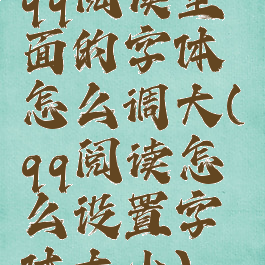 qq阅读里
面的字体
怎么调大(
qq阅读怎
么设置字
体大小)